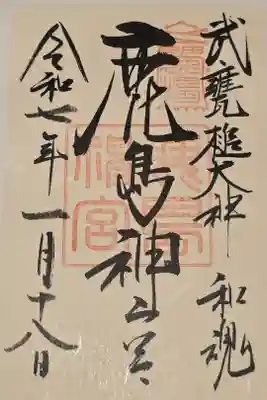 武甕槌大神 和魂
鹿島神宮
鹿島神宮
令和七年一月十八日